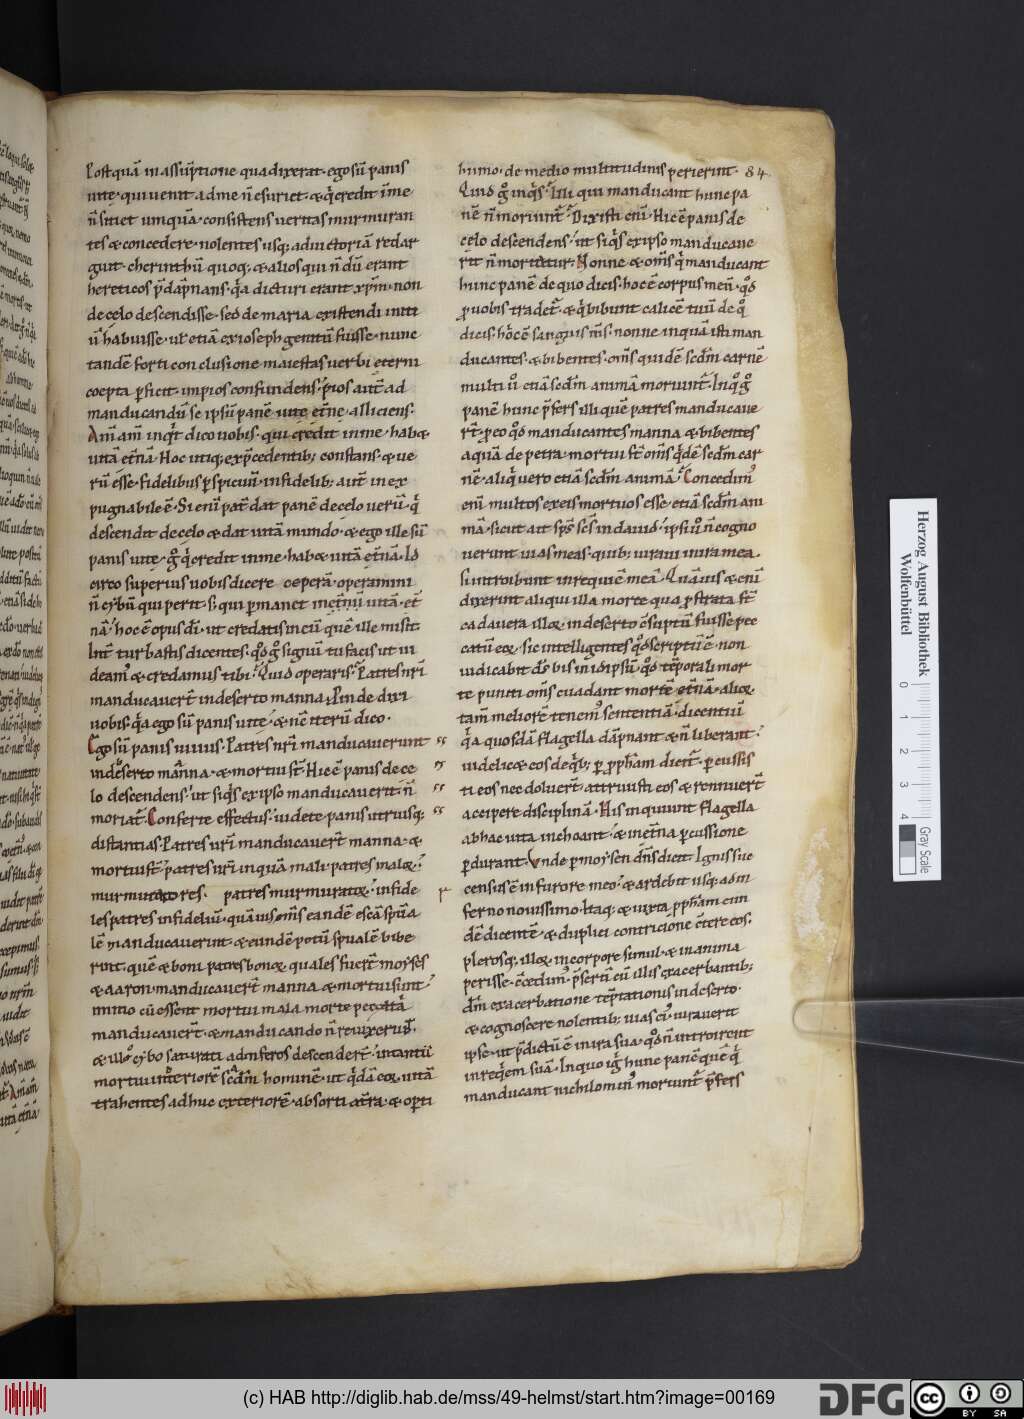 Postquā in assūptione qua dixerat· ego sū panis
uite· qui uenit ad me n̄ esuriet· & q̇ credit ī me
n̄ sitiet umquā· consistens ueritas murmuran
tes & concedere· nolentes usq; ad uictoriā redar
guit· cherinthū quoq;· & alios qui n̄ dū erant
hereticos p̄dāpnans· q̇a dicturi erant xp̄m· non
de celo descendisse· sed de maria existendi initi
ū habuisse· ut̄ etiā ex ioseph genitū fuisse· nunc
tandē forti conclusione maiestas uerbi eterni
coepta p̄ficit· impios confundens· pios aut̄ ad
manducandū se ipsū panē uite et̄ne· alliciens·
Am̄ am̄ inq̇t dico uobis· qui credit in me· hab&
uitā et̄nā· Hoc utiq; ex p̄cedentib; constans· & ue
rū esse· fidelibus p̄spicuū· infidelib; aut̄ in ex
pugnabile ē· Si enī pat̄ dat panē de celo uerū· q̇
descendit de celo & dat uitā mundo· & ego ille sū
panis uite· g̊ q̇ credit in me· hab& uitā et̄nā· Id
circo superius uobis dicere cep̄erā· operamini
n̄ cybū qui perit· s; qui p̄manet in et̄nū uitā· et̄
nā· hoc ē opus dī· ut credatis in eū quē ille misit·
Int̄ turbastis dicentes· q̊d g̊ signū tu facis ut ui
deam᷒ & credamus tibi· Quid operaris· Patres nr̄i
manducauer̄t in deserto manna· Inde dixi
uobis· q̇a ego sū panis uite· & nc̄ iterū dico·
Ego sū panis uiuus· Patres ur̄i manducauerunt
in deserto manna· & mortui st̄· Hic ē panis de ce
lo descendens· ut siq̇s ex ipso manducauerit· n̄
moriat̄· Conferte effectus· uidete panis utriusq;
distantias· Patres ur̄i manducauer̄t manna· &
mortui st̄· patres ur̄i inquā mali· patres malox·
murmuratores· patres murmuratox· infide
les patres infideliū· quā uis om̄s eandē escā sp̄ua
lē manducauerunt· & eundē potū sp̄ualē bibe
runt· quē & boni patres bonox· quales fuer̄t moyses
& aaron· manducauer̄t manna· & mortui sunt·
Initio cū essent mortui mala morte peccatā
manducauer̄t· & manducando n̄ reuixerūt·
& illo cybo saturati ad inferos descender̄t· intantū
mortui interiorē scd̄m hominē· ut q̇dā eox uitā
trahentes adhuc exteriorē· absorti at̄ra· & op̄ti
humo· de medio multitudinis perierunt· 84
Quid g̊ inq̇s· Illi qui manducant hunc pa
nē n̄ moriunt̄· Dixisti eni· Hic ē panis de
celo descendens· ut siq̇s ex ipso manducaue
rit n̄ moriatur· Nonne & om̄s q̇ manducant
hunc panē de quo dicis· hoc ē corpus meū· q̊d
p̄ uobis tradet̄· & q̇ bibunt calicē tuū de q̊
dicis· hic ē sanguis m̄s· nonne inquā isti man
ducantes· & bibentes· om̄s quidē scd̄m carnē
multi ů etiā scd̄m animā moriunt̄· In q̊ g̊
panē hunc p̄fers illi quē patres manducaue
rt̄· p̄ eo q̊d manducantes manna & bibentes
aquā de petra· mortui st̄ om̄s q̇dē scd̄m car
nē· aliq̇ uero etiā scd̄m animā· Concedim᷒
enī multos ex eis mortuos esse· etiā scd̄m ani
mā· sicut ait sp̄s sc̄s in dauid· ipsi ů n̄ cogno
uerunt uias meas· quib; iuraui in ira mea·
si introibunt in requiē meā· Quāuis & enī
dixerint aliqui illa morte qua p̄strata st̄
cadauera illox in deserto c̄sūptū fuisse pec
catū eox· sic intelligentes q̊d scriptū ē· non
uidicabit ds̄ bis in idipsū· q̊d tēporali mor
te puniti om̄s euadant mortē et̄nā· aliox
tam̄ meliorē tenem᷒ sententiā· dicentiū
q̇a quosdā flagella dāpnant & n̄ liberant·
uidelic& eos de q̇b; p̄ p̄ph̄am dicit̄· p̄cussis
ti eos nec doluer̄t· attriuisti eos & rennuer̄t
accipere disciplinā· His inquiunt flagella
ab hac uita inchoant· & in et̄na p̄cussione
p̄durant· Vnde p̄ moysen dn̄s dicit· Ignis suc
census ē in furore meo· & ardebit usq; ad in
ferno nouissimo· Itaq; & iuxta p̄ph̄am eun
dē dicentē· & duplici contricione c̄tere eos·
plerosq; illox in corpore simul & in anima
perisse· c̄cedim᷒· p̄serti cū illis q̇ exacerbantib;
dm̄ exacerbatione tēptationis in deserto·
& cognoscere nolentib; uias ei᷒· iurauerit
ipse· ut p̄dictū ē in ira sua· q̊d n̄ introirent
in reqiem suā· In quo ig̊ hunc panē quē q̇
manducant nichilomin᷒ moriunt̄ p̄fers
Herzog August Bibliothek
Wolfenbüttel
0 1 2 3 4
Gray Scale
(c) HAB http://diglib.hab.de/mss/49-helmst/start.htm?image=00169
DFG
cc BY SA